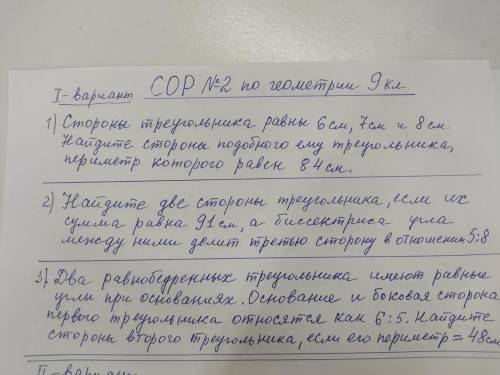 I-вариант СОР №2 по геометрии 9 кл
1) Стороны треугольника равны 6см, 7см и 8см.
Найдите стороны подобного ему треугольника,
периметр которого равен 84см.
2) Найдите две стороны треугольника, если их
сумма равна 91см, а биссектриса угла
между ними делит третью сторону в отношении 5:8
3) Два равнобедренных треугольника имеют равные
углы при основаниях. Основание и боковая сторона
первого треугольника относятся как 6:5. Найдите
стороны второго треугольника, если его периметр = 48см
II-вариант